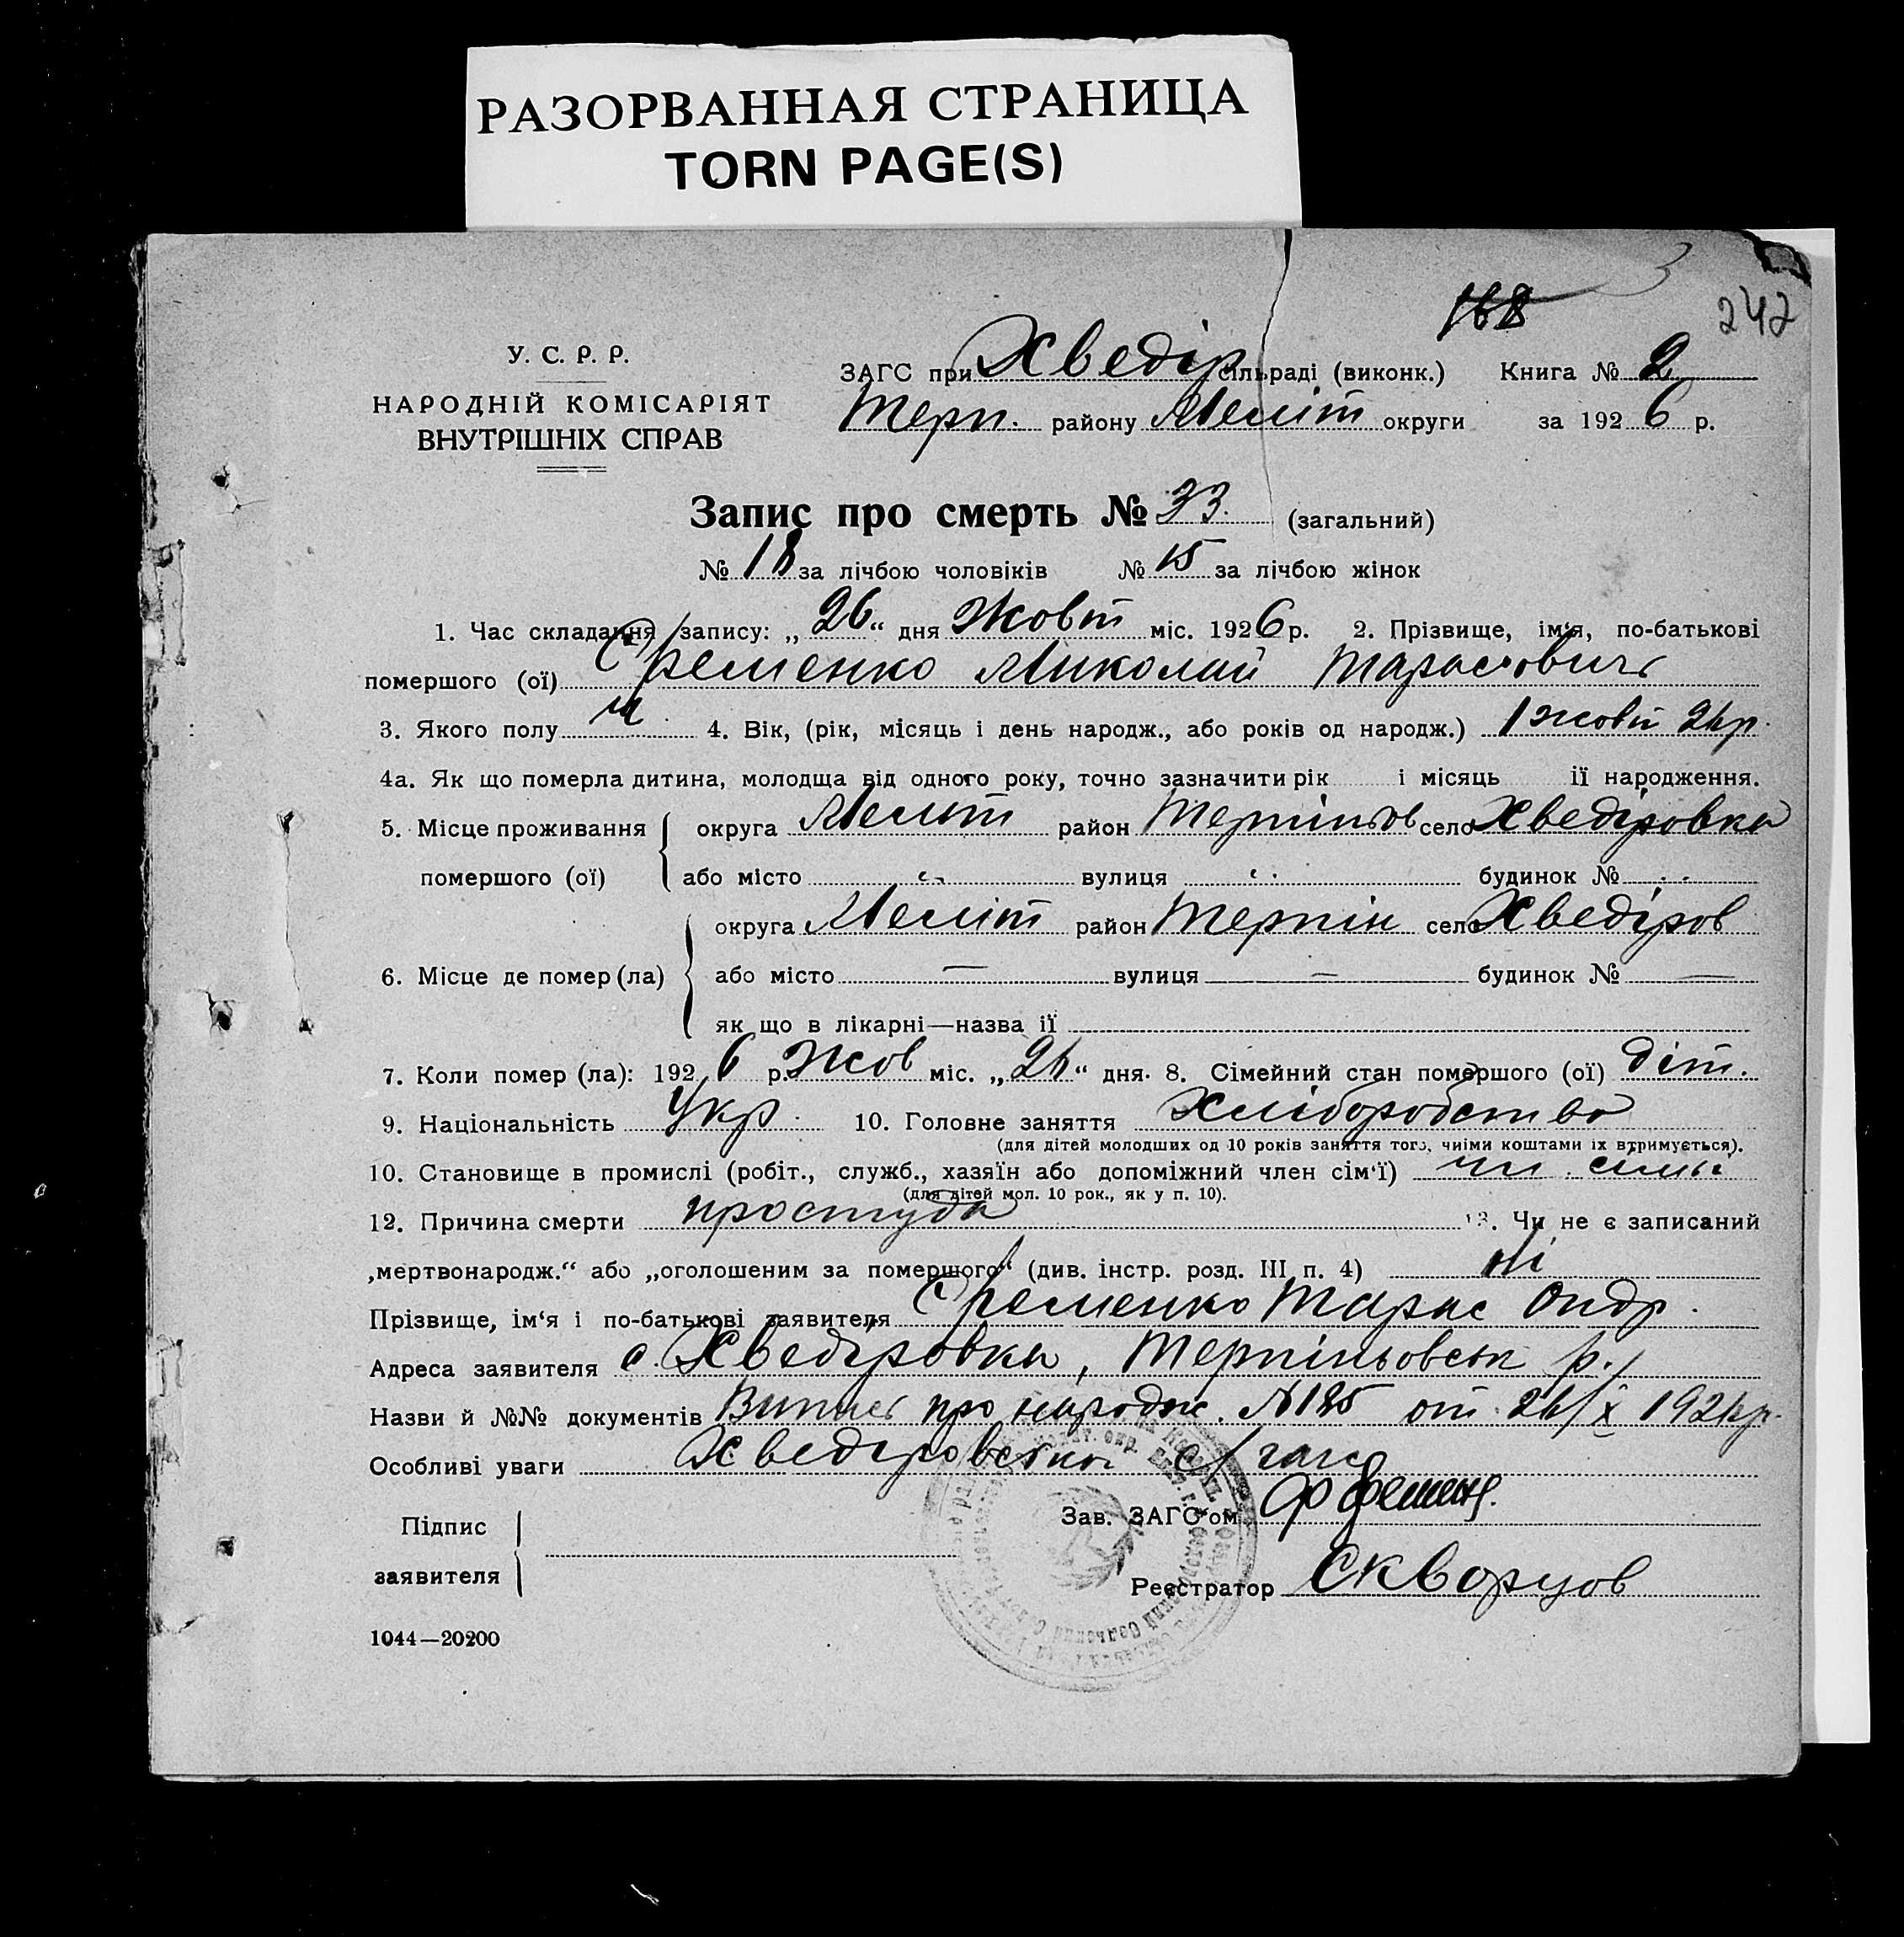 РАЗОРВАННАЯ СТРАНИЦА
TORN PAGE(S)
168
242
У. С. Р. Р.
НАРОДНІЙ КОМІСАРІЯТ
ВНУТРІШНІХ СПРАВ
ЗАГС при Хведір сільраді (виконк.) Книга № 2
Терп. району Меліт округи за 1926 р.
Запис про смерть № 33. (загальний)
№ 18 за лічбою чоловіків № 15 за лічбою жінок
1. Час складання запису: „26“ дня Жовт міс. 1926 р. 2. Прізвище, ім‘я, по-батькові
помершого (ої) Єременко Миколай Тарасович
3. Якого полу ч. 4. Вік, (рік, місяць і день народж., або років од народж.) 1 жовт 26 р.
4а. Як що померла дитина, молодща від одного року, точно зазначити рік і місяць її народження.
5. Місце проживання округа Меліт район Терпіньов село Хведіровка
помершого (ої) або місто вулиця будинок №
округа Меліт район Терпін село Хведіров
6. Місце де помер (ла) або місто — вулиця — будинок № —
як що в лікарні—назва її
7. Коли помер (ла): 1926 р. Жов міс. „26“ дня. 8. Сімейний стан помершого (ої) діт.
9. Національність Укр. 10. Головне заняття Хліборобство
(для дітей молодших од 10 років заняття того, чиїми коштами їх втримується).
10. Становище в промислі (робіт., служб., хазяїн або допоміжний член сім‘ї) чл. сімьї
(для дітей мол. 10 рок., як у п. 10).
12. Причина смерти простуда 13. Чи не є записаний
„мертвонародж.“ або „оголошеним за помершого“ (див. інстр. розд. III п. 4) ні
Прізвище, ім‘я і по-батькові заявителя Єременко Тарас Ондр.
Адреса заявителя с. Хведіровка, Терпіньовськ р.
Назви й №№ документів Випис про народж. № 185 от 26/X 1926 р.
Особливі уваги Хведіровської с/ загс
Підпис
заявителя
Зав. ЗАГС‘ом
Реєстратор Скворцов
1044—20200